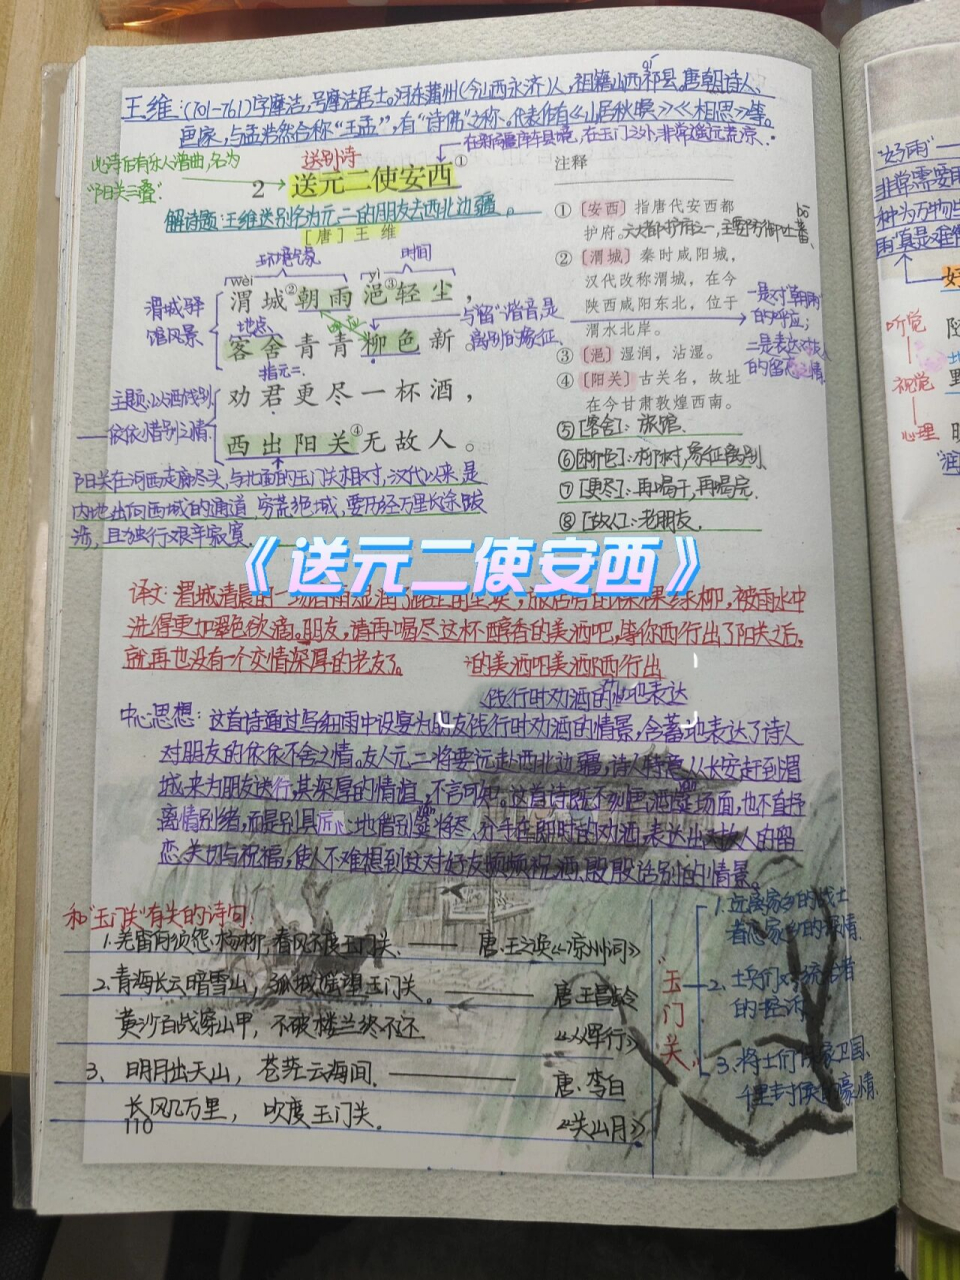 王维:(701-761)字摩诘,号摩诘居士。河东蒲州(今山西永济)人,祖籍山西祁县。唐朝诗人、
画家,与孟浩然合称“王孟”,有“诗佛”之称。代表作有《山居秋暝》《相思》等。
在新疆库车县境,在玉门之外,非常遥远荒凉.
此诗后有乐人谱曲,名为
“阳关三叠”.
送别诗
2 送元二使安西①
解诗题:王维送别名为元二的朋友去西北边疆。
[唐]王维
环境气象
时间
wèi
yì
渭城②朝雨浥③轻尘,
渭城驿
馆风景
地点
呼应
客舍青青柳色新。
指元二.
与“留”谐音,是
离别的象征.
劝君更尽一杯酒,
主题:以酒饯别
——依依惜别之情.
西出阳关④无故人。
阳关在河西走廊尽头,与北面的玉门关相对,汉代以来,是
内地出向西域的通道,穷荒绝域,要历经万里长途跋
涉,且独行艰辛寂寞.
注释
①[安西]指唐代安西都
护府.六大都护府之一,主要防御吐蕃.
②[渭城]秦时咸阳城,
汉代改称渭城,在今
陕西咸阳东北,位于
渭水北岸。
③[浥]湿润,沾湿。
④[阳关]古关名,故址
在今甘肃敦煌西南。
⑤[客舍]:旅馆.
⑥[柳色]:柳树,象征离别.
⑦[更尽]:再喝干,再喝完.
⑧[故人]:老朋友.
一是对“朝雨”
的呼应;
二是表达对友人
的留恋之情.
《送元二使安西》
译文:渭城清晨的一场
洗得更加翠色欲滴。朋友,请再喝尽这杯醇香的美酒吧,等你西行出了阳关之后,
就再也没有一个交情深厚的老友了。
的美酒吧美酒西行出
饯行时劝酒的地表达
中心思想:这首诗通过写细雨中设宴为朋友饯行时劝酒的情景,含蓄地表达了诗人
对朋友的依依不舍之情。友人元二将要远赴西北边疆,诗人特意从长安赶到渭
城来为朋友送行,其深厚的情谊,不言可知。这首诗既不刻画酒筵场面,也不直抒
离情别绪,而是别具匠心地借别筵将尽、分手在即时的劝酒,表达出对友人的留
恋、关切与祝福,使人不难想到这对好友频频祝酒、殷殷话别的情景。
和“玉门关”有关的诗句:
1.羌笛何须怨杨柳,春风不度玉门关.——唐.王之涣《凉州词》
2.青海长云暗雪山,孤城遥望玉门关。——唐.王昌龄
黄沙百战穿金甲,不破楼兰终不还
《从军行》
3、明月出天山,苍茫云海间.——唐.李白
长风几万里,吹度玉门关.
《关山月》
110
“玉门关”
1.远离家乡的战士
2.士兵们对统治者
的控诉
3.将士们保家卫国、
“好雨”
非常需要
种为万物
听觉
视觉
心理